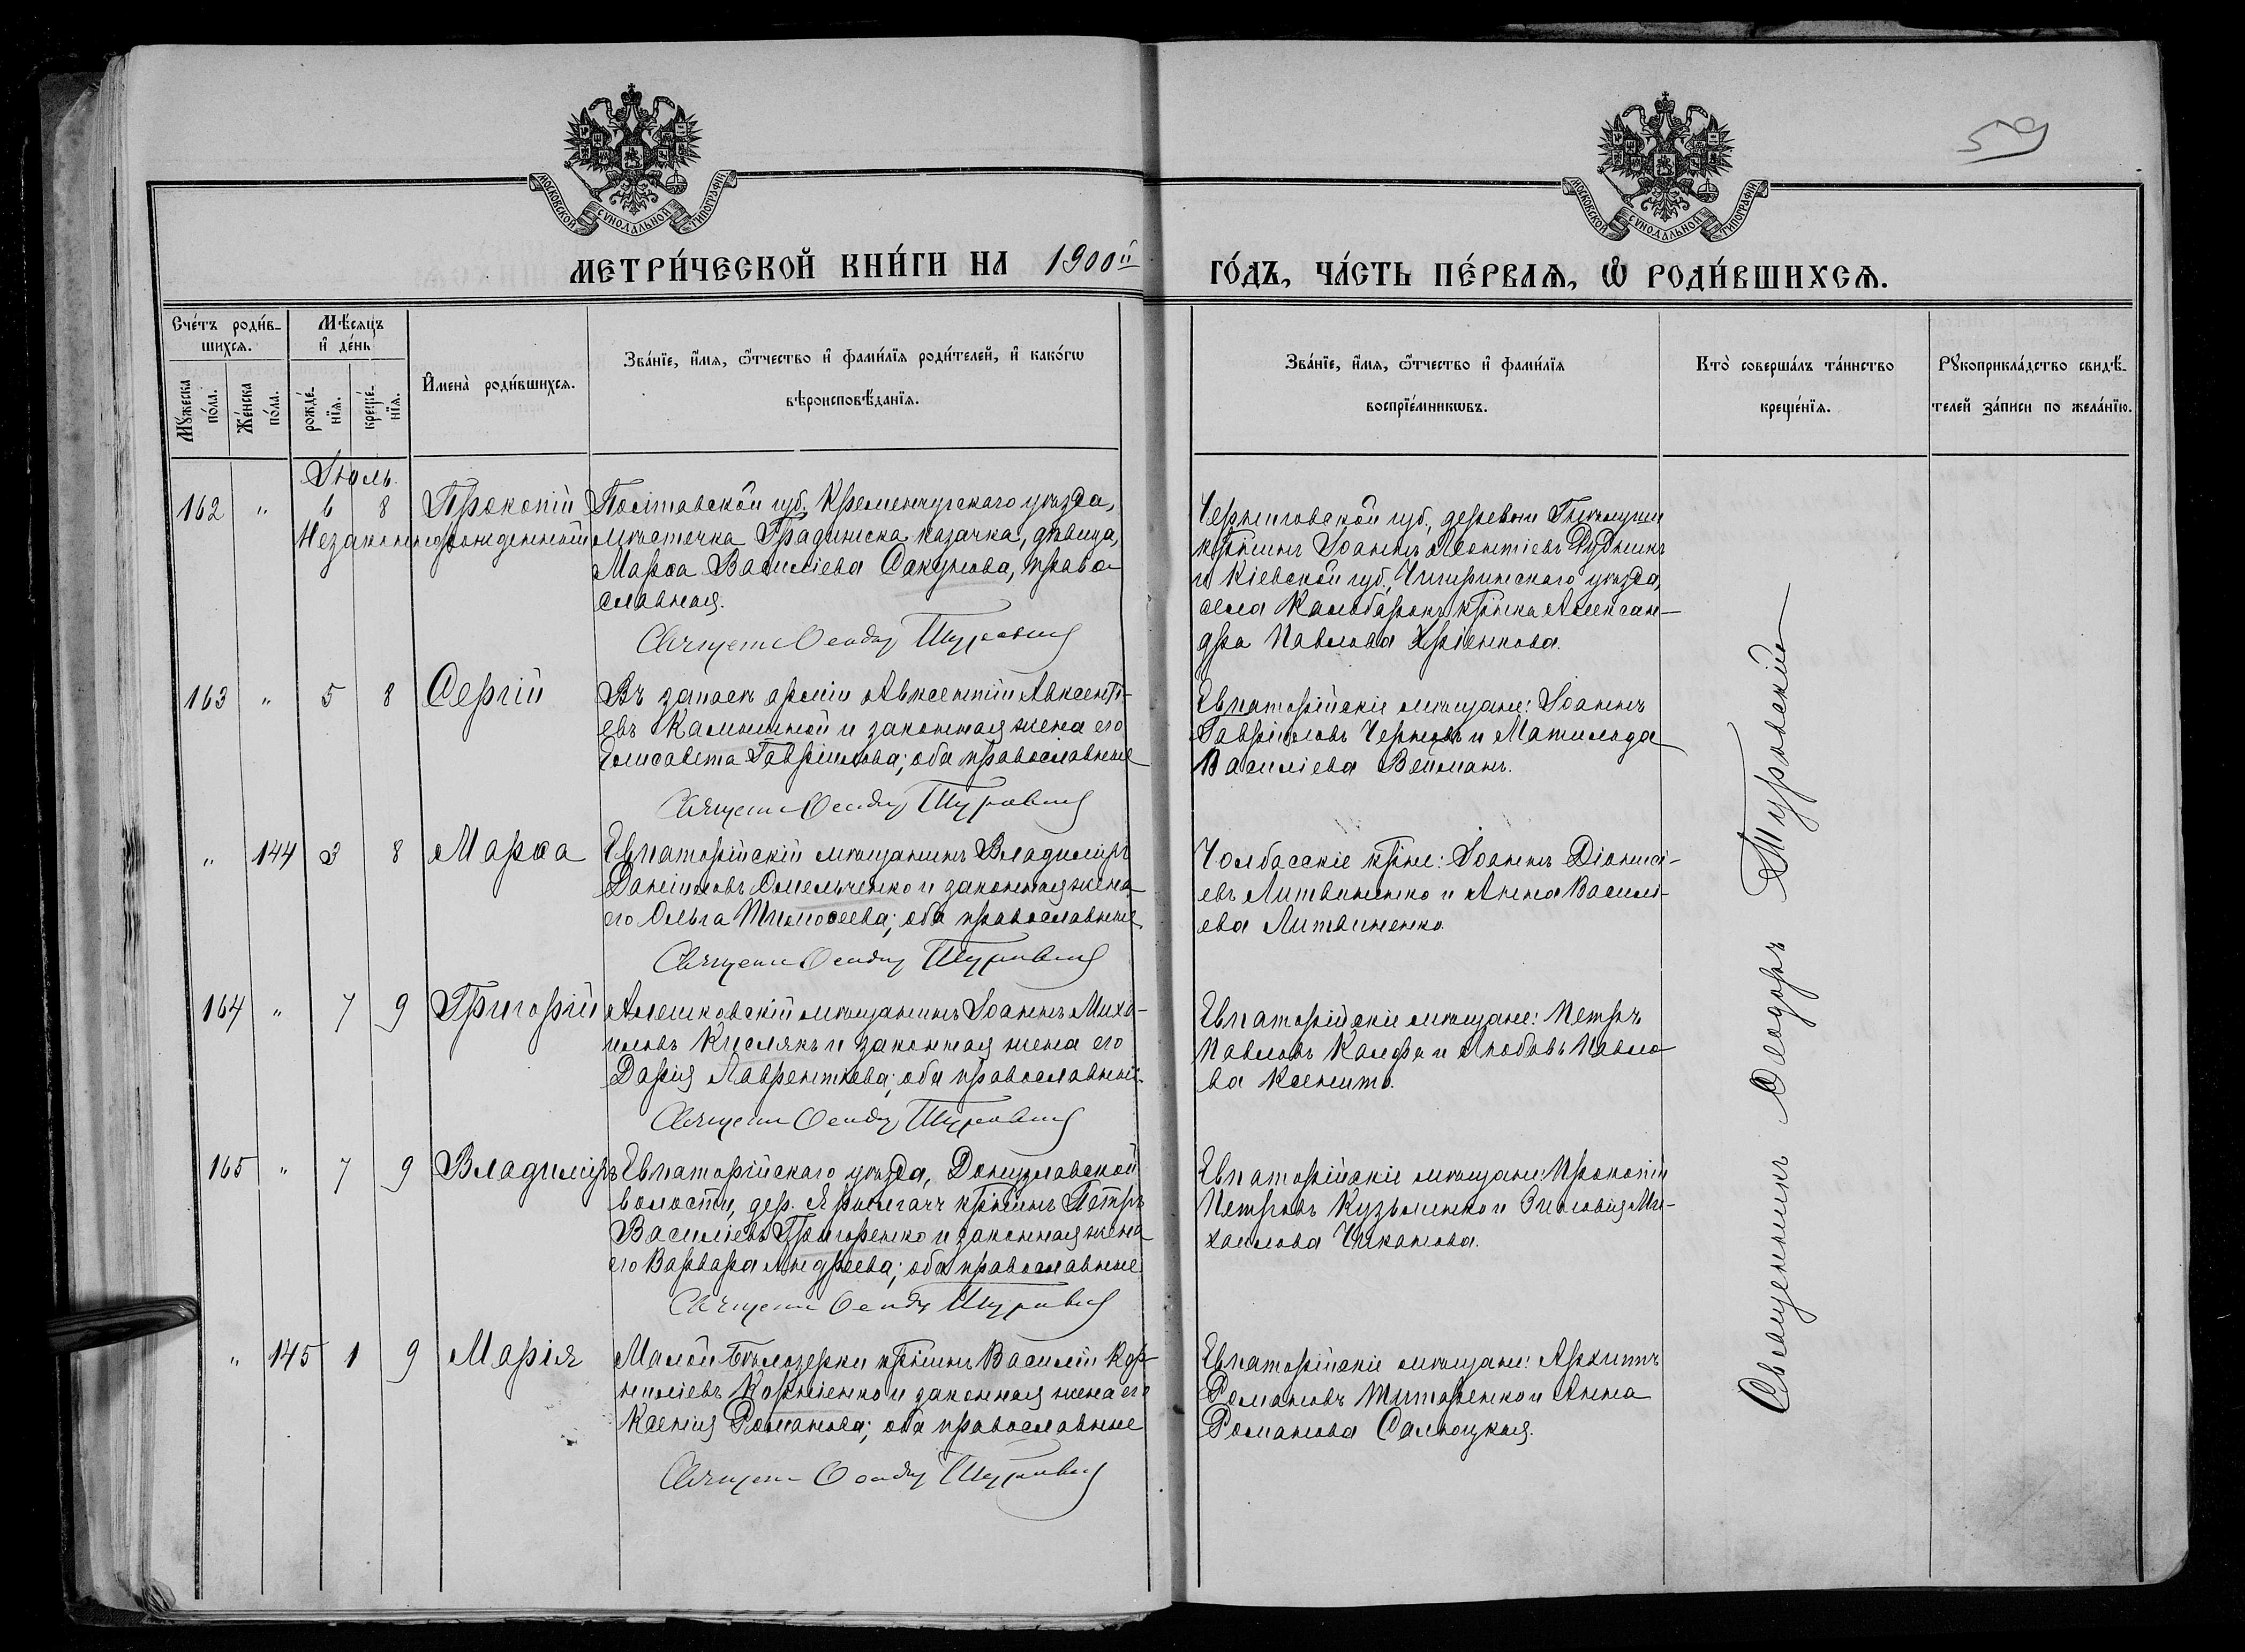 59
МОСКОВСКОЙ СѴНОДАЛЬНОЙ ТИПОГРАФІИ
МОСКОВСКОЙ СѴНОДАЛЬНОЙ ТИПОГРАФІИ
МЕТРИ́ЧЕСКОЙ КНИ́ГИ НА 1900й ГО́ДЪ, ЧА́СТЬ ПЕ́РВАѦ, Ѡ҆ РОДИ́ВШИХСѦ.
Сче́тъ роди́в-
шихсѧ.
Мѣ́сѧцъ
и҆ де́нь
Мꙋ́жеска
по́ла.
Же́нска
по́ла.
рожде́-
нїѧ.
креще́-
нїѧ.
И҆мена̀ роди́вшихсѧ.
Зва́нїе, и҆́мѧ, ѻ҆́тчество и҆ фами́лїѧ роди́телей, и҆ како́гѡ
вѣроисповѣ́данїѧ.
Зва́нїе, и҆́мѧ, ѻ҆́тчество и҆ фами́лїѧ
воспрїе́мникѡвъ.
Кто̀ соверша́лъ та́инство
креще́нїѧ.
Рꙋкоприкла́дство свидѣ́-
телей за́писи по жела́нїю.
Іюль.
162 " 6 8 Прокопій
Незаконнорожденный
Полтавской губ. Кременчугскаго уѣзда,
мѣстечка Градижска казачка, дѣвица,
Марѳа Василіева Сакунова, право
славная.
Священ Ѳеодор Туровский
Черниговской губ., деревни
крѣинъ Іоаннъ Леонтіевъ Рудникъ
и Кіевской губ., Чигиринскаго уѣзда,
села крѣнка Алексан-
дра Павлова Хріенкова.
163 " 5 8 Сергій
Въ запасѣ арміи Авксентій Авксенті-
евъ Калинини и законная жена его
Елисавета Гавріилова; оба православные
Священ Ѳеодор Туровский
Евпаторійскіе мѣщане: Іоаннъ
Гавріиловъ Черневъ и Матильда
Василіева Вейманъ.
" 144 3 8 Марѳа
Евпаторійскій мѣщанинъ Владиміръ
Даниловъ Омельченко и законная жена
его Ольга Тимоѳеева; оба православные
Священ Ѳеодор Туровский
Чолбасскіе крѣне: Іоаннъ Діонисі-
евъ Литвиненко и Анна Василі-
ева Литвиненко.
164 " 7 9 Григорій
Алешковскій мѣщанинъ Іоаннъ Миха-
иловъ Кислякъ и законная жена его
Дарія Лаврентіева; оба православные.
Священ Ѳеодор Туровский
Евпаторійскіе мѣщане: Петръ
Павловъ Калфа и Любовь Павло-
ва
165 " 7 9 Владиміръ
Евпаторійскаго уѣзда, Донузлавской
волости, дер. Ярылгачъ крѣинъ Петръ
Василіевъ Григоренко и законная жена
его Варвара Андреева; оба православные.
Священ Ѳеодор Туровский
Евпаторійскіе мѣщане: Прокопій
Петровъ Кузьменко и Зиновія Ми-
хаилова Чиканова.
" 145 1 9 Марія
Малой Бѣлозерки крѣинъ Василій Кор-
ниліевъ Корніенко и законная жена его
Ксенія Романова; оба православные
Священ Ѳеодор Туровский
Евпаторійскіе мѣщане: Архипъ
Романовъ Титаренко и Анна
Романова Салюцкая.
Священникъ Ѳеодоръ Туровский